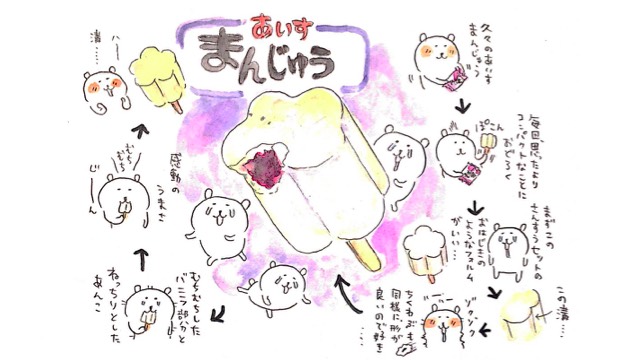 あいす
まんじゅう
久々のあいす
まんじゅう
ぽこん
毎回、思ったより
コンパクトなことに
おどろく
まずこの
さんすうセットの
おはじきの
ようなフォルム
がいい…
この溝…
ゾクゾク
ちくわぶも
同様に、形が
良いので好き
むちむちした
バニラ部分と
ねっちりとした
あんこ
むちむち
じーん
感動の
うまさ
ハー
溝……